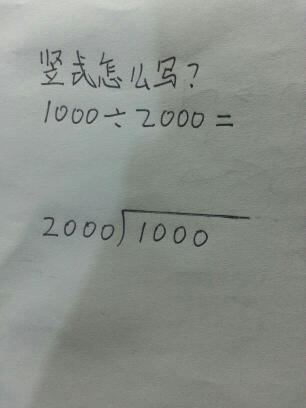 竖式怎么写?
1000÷2000=
2000)1000